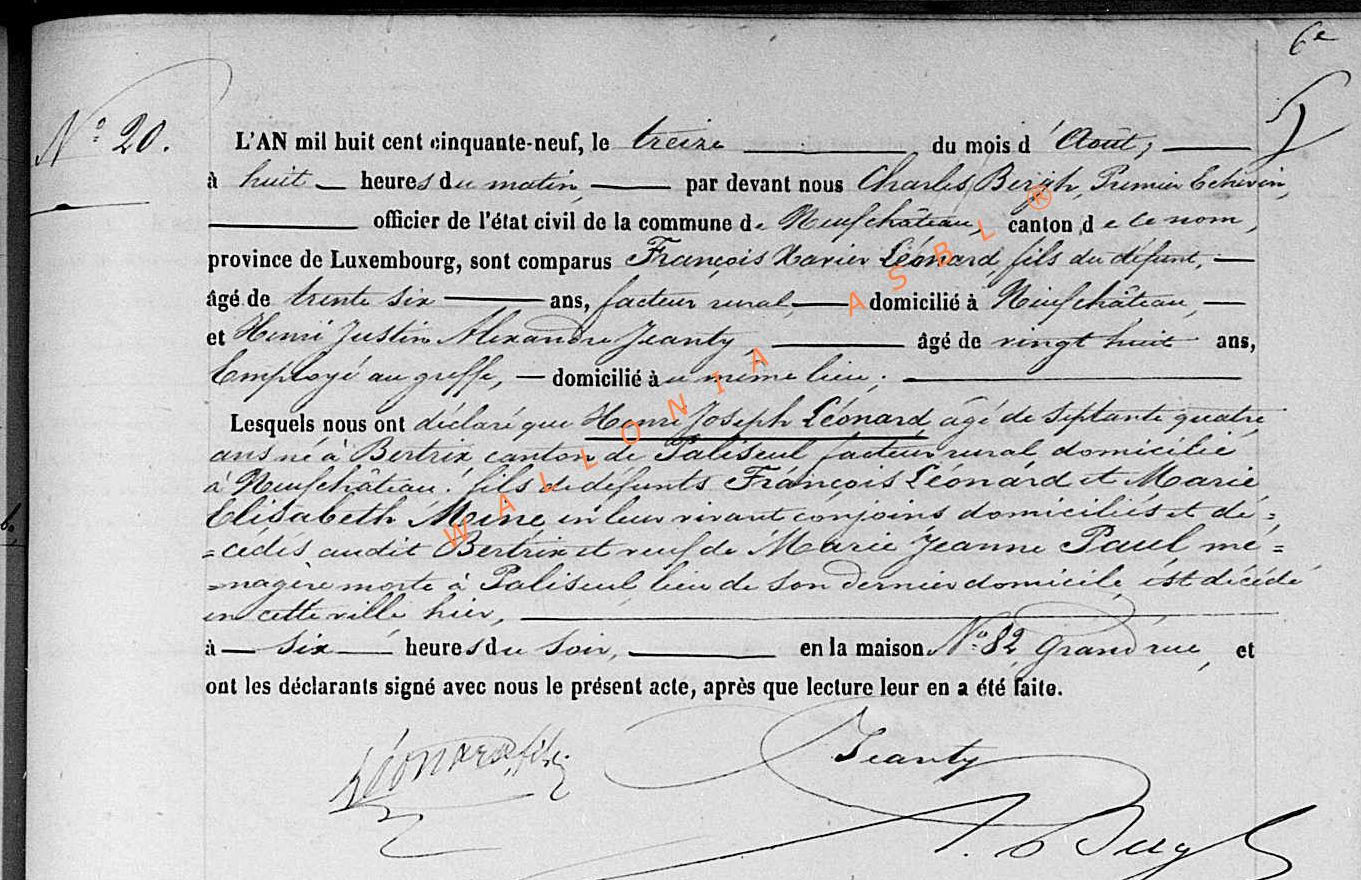 6e
N° 20.
L'AN mil huit cent cinquante-neuf, le treize du mois d'Août,
à huit heures du matin, par devant nous Charles Bergh, Premier Echevin,
officier de l'état civil de la commune de Neufchâteau, canton de ce nom,
province de Luxembourg, sont comparus François Xavier Léonard, fils du défunt,
âgé de trente six ans, facteur rural, domicilié à Neufchâteau,
et Henri Justin Alexandre Jeanty, âgé de vingt huit ans,
Employé au greffe, domicilié au même lieu;
Lesquels nous ont déclaré que Henri Joseph Léonard âgé de septante quatre
ans né à Bertrix canton de Paliseul facteur rural domicilié
à Neufchâteau, fils de défunts François Léonard et Marie
Elisabeth Moine en leur vivant conjoins domiciliés et dé=
=cédés audit Bertrix et veuf de Marie Jeanne Paul mé=
=nagère morte à Paliseul lieu de son dernier domicile, est décédé
en cette ville hier,
à six heures du soir, en la maison N° 82, grand rue, et
ont les déclarants signé avec nous le présent acte, après que lecture leur en a été faite.
Léonard, fils
Jeanty
WALLONIA ASBL ®